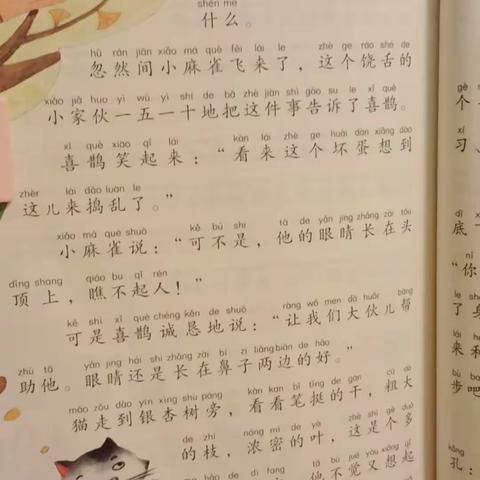 shén me
什么。
hū rán jiān xiǎo má què fēi lái le zhè ge ráo shé de
忽然间小麻雀飞来了，这个饶舌的
xiǎo jiā huo yī wǔ yī shí de bǎ zhè jiàn shì gào su le xǐ què
小家伙一五一十地把这件事告诉了喜鹊。
xǐ què xiào qǐ lái kàn lái zhè ge huài dàn xiǎng dào
喜鹊笑起来：“看来这个坏蛋想到
zhèr lái dǎo luàn le
这儿来捣乱了。”
xiǎo má què shuō kě bú shì tā de yǎn jing zhǎng zài tóu
小麻雀说：“可不是，他的眼睛长在头
dǐng shang qiáo bu qǐ rén
顶上，瞧不起人！”
kě shì xǐ què chéng kěn de shuō ràng wǒ men dà huǒr bāng
可是喜鹊诚恳地说：“让我们大伙儿帮
zhù tā yǎn jing hái shi zhǎng zài bí zi liǎng biān de hǎo
助他。眼睛还是长在鼻子两边的好。”
māo zǒu dào yín xìng shù páng kàn kan bǐ tǐng de gàn cū dà
猫走到银杏树旁，看看笔挺的干，粗大
de zhī nóng mì de yè zhè shì gè duō
的枝，浓密的叶，这是个多
他不觉又想起
gè
个
xí
习
dǐ
底
nǐ
“你
了
lái
来
bù
步吧
kǒng
孔：